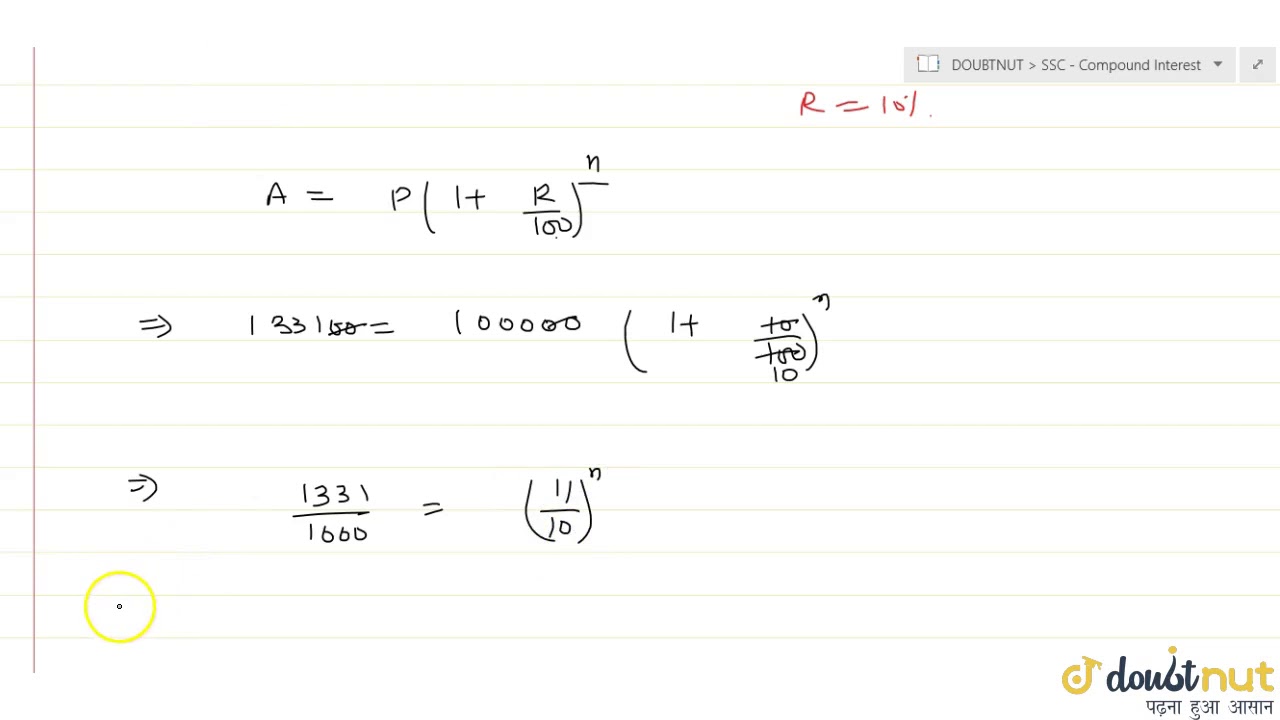 DOUBTNUT > SSC - Compound Interest
R = 10%.
A = P(1+ R/100)^n
⇒ 133100 = 100000 (1+ 10/100 10)^n
⇒ 1331/1000 = (11/10)^n
doubtnut
पढ़ना हुआ आसान